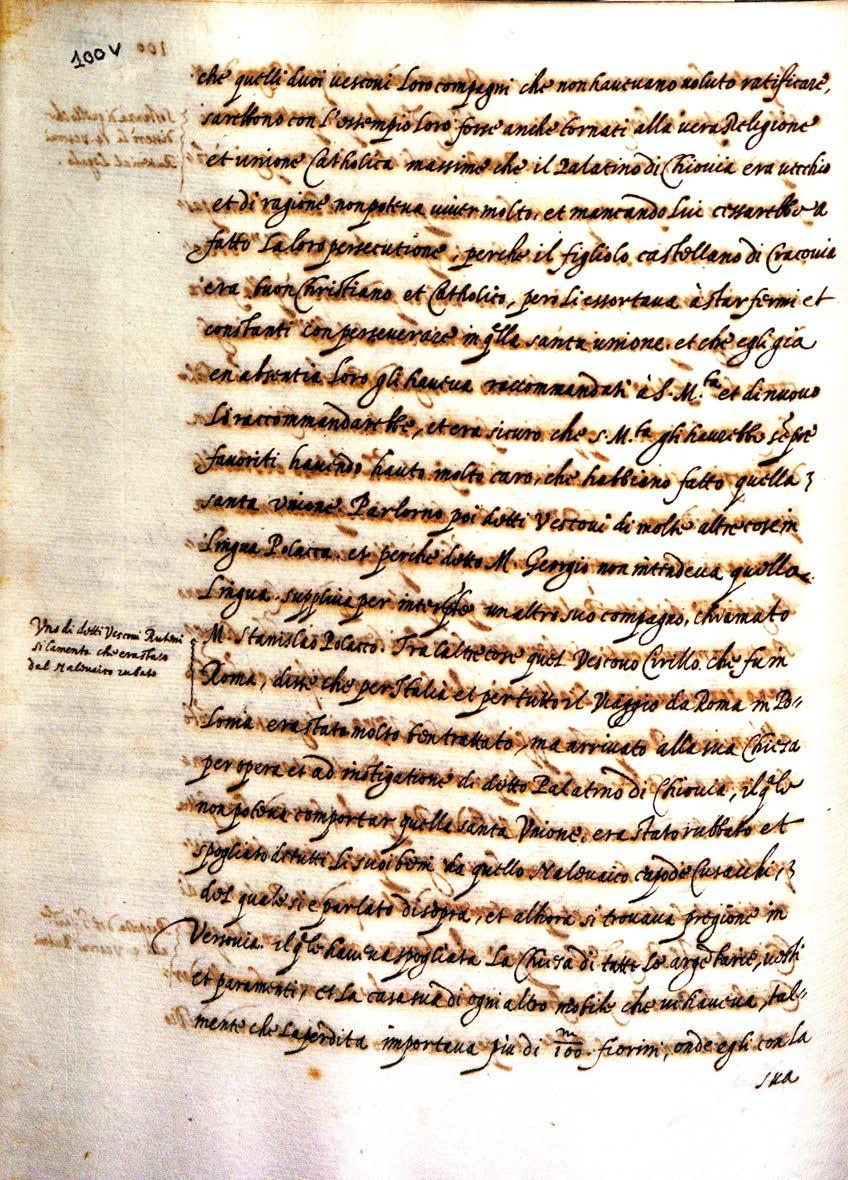 100v
che quelli duoi vescoui loro compagni che non haueuano uoluto ratificare,
sarebbono con l'essempio loro forse anche tornati alla vera Religione
et unione Catholica massime che il Palatino di Chiouia era uecchio
et di ragione non poteua uiuer molto, et mancando lui cessarebbe a
fatto la loro persecutione, perche il figliolo castellano di Cracouia
era buon Christiano et Catholico, però li essortaua à star fermi et
constanti con perseuerare in qlla santa unione. et che egli già
en absentia loro gli haueua raccommandati à S. M.tà et di nuouo
li raccommandarebbe, et era sicuro che S. M.tà gli haurebbe sẽpre
fauoriti hauendo hauto molto caro, che habbiano fatto quella
santa Vnione. Parlorno poi detti Vescoui di molte altre cose in
lingua Polacca. et perche detto M. Georgio non intendeua quella
lingua. suppliua per interprete un altro suo compagno, chiamato
M. Stanislao Polacco. Tra l'altre cose quel Vescouo Cirillo che fu in
Roma, disse che per Italia et per tutto il viaggio da Roma in Po=
lonia era stato molto ben trattato, ma arriuato alla sua Chiesa
per opera et ad instigatione di detto Palatino di Chiouia, il qle
non poteua comportar quella santa Vnione. era stato rubbato et
spogliato di tutti li suoi beni da quello Naleuaico capo de Cusacchi,
del quale si è parlato di sopra, et alhora si trouaua pregione in
Versouia. il qle haueua spogliata la Chiesa di tutte le argẽtarie, uesti
et paramenti, et la casa sua di ogni altro mobile che ui haueua, tal=
mente che la perdita importaua più di m/100. fiorini, onde egli con la
sua
Vno di detti Vescoui Ruteni
si lamenta che era stato
dal Naleuaico rubato